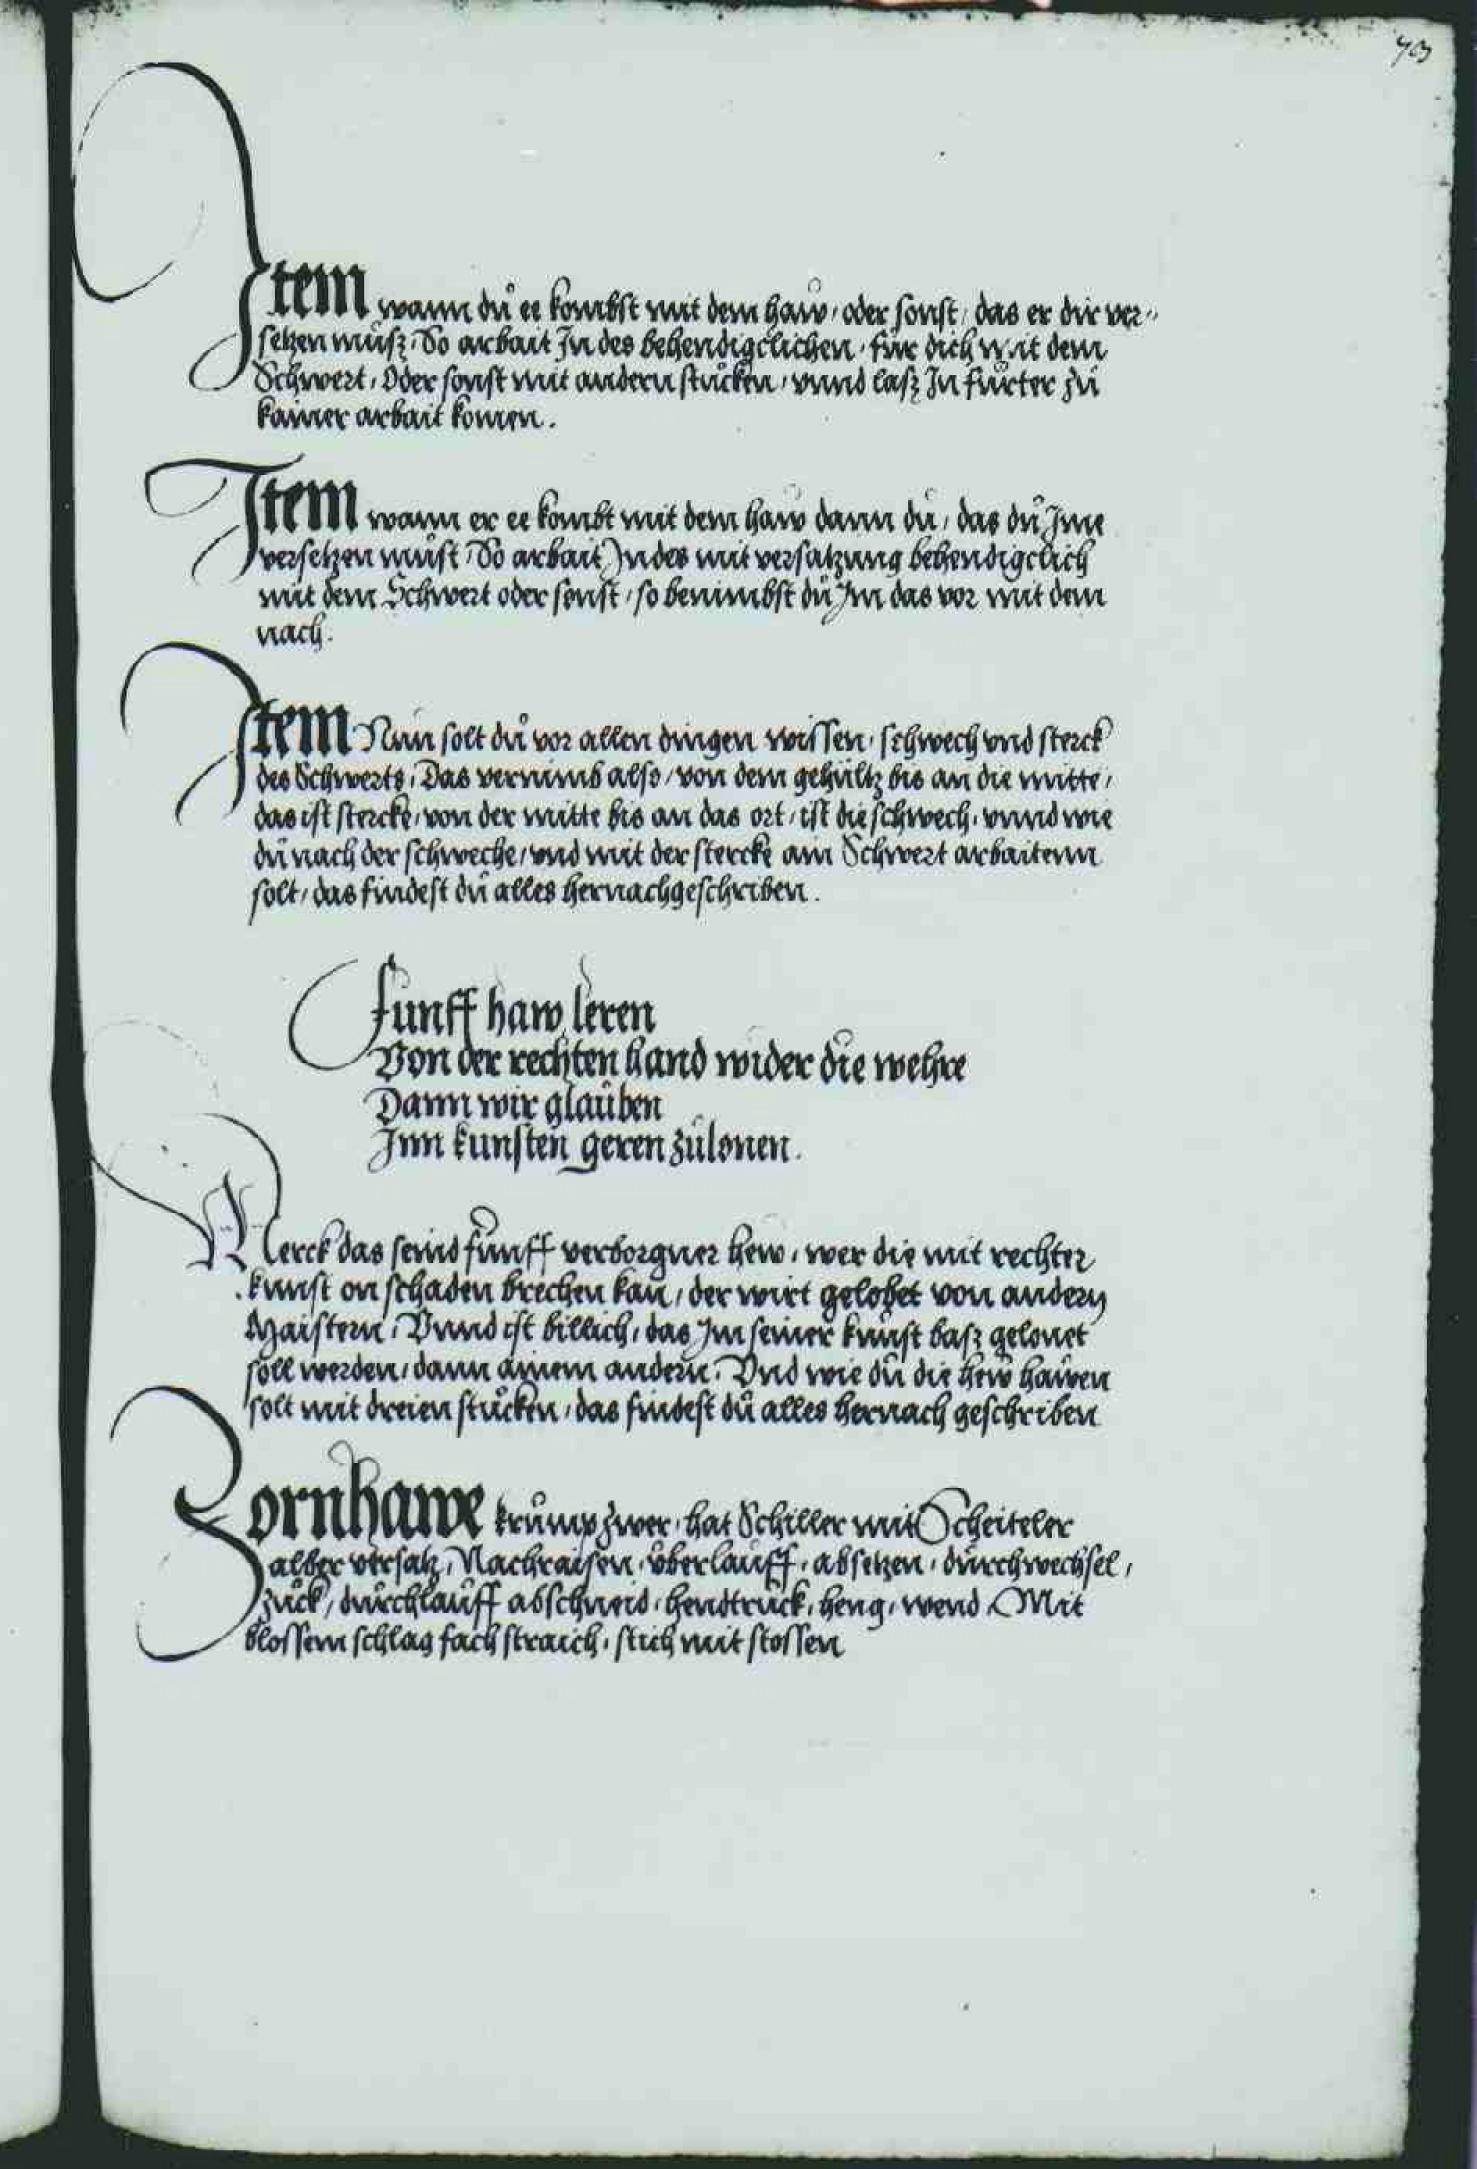 Item wann dů ee kombst mit dem haw, oder sonst, das er dir ver„
setzen můsz, So arbait In des behendigclichen, für dich mit dem
Schwert, Oder sonst mit andern stůcken, vnnd lasz In fürter zů
kainer arbait komen.
Item wann er ee kombt mit dem haw dann dů, das dů Ime
versetzen můst, So arbait Indes mit versatzung behendigclich
mit dem Schwert oder sonst, so benimbst dů Im das vor mit dem
nach.
Item Nun solt dů vor allen dingen wissen, schwech vnd sterck
des Schwerts, Das vernimb also, von dem gehültz bis an die mitte,
das ist stercke, von der mitte bis an das ort, ist die schwech, vnnd wie
dů nach der schweche, vnd mit der stercke am Schwert arbaitenn
solt, das findest dů alles hernachgeschriben.
Funff haw leren
Von der rechten hand wider die wehre
Dann wir glauben
Inn kunsten geren zůlonen.
Merck das seind fůnff verborgner hew, wer die mit rechter
kunst on schaden brechen kan, der wirt gelobet von andern
Maistern, Vnnd ist billich, das Im seiner kůnst basz gelonet
soll werden, dann ainem andern. Vnd wie dů die hew hawen
solt mit dreien stůcken, das findest dů alles hernach geschriben
Zornhawe krůmp zwer, hat Schiller mit Scheiteler
alber versatz, Nachraisen, überlauff, absetzen, durchwechsel,
Zuck, důrchlauff abschneid, hendtruck, heng, wend, Mit
blossem schlag fach straich, stich mit stossen